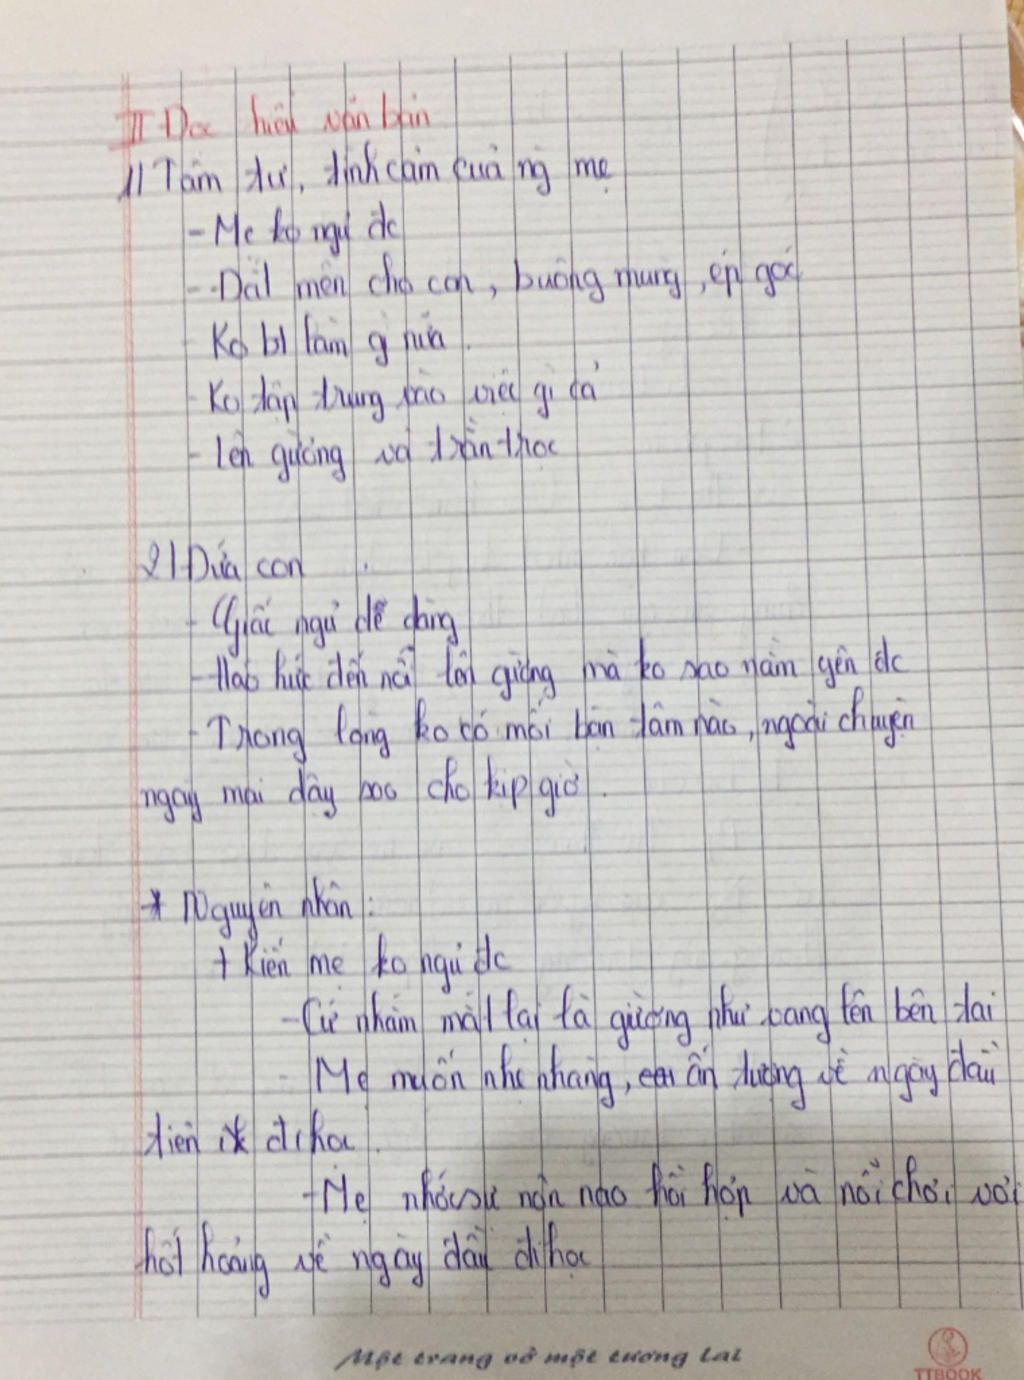 II Đọc hiểu văn bản
1/ Tâm tư, tình cảm của ng mẹ
- Mẹ ko ngủ đc
- Đắt mền cho con, buông mùng, ép góc
- Ko bt làm g nữa.
- Ko tập trung vào việc gì cả
- lên giường và trằn trọc
2/ Đứa con
- Giấc ngủ dễ dàng
- Háo hức đến nỗi lên giường mà ko sao nằm yên đc
- Trong lòng ko có mối bận tâm nào, ngoài chuyện
ngày mai dậy sao cho kịp giờ.
* Nguyên nhân:
+ Kiến mẹ ko ngủ đc
- Cứ nhắm mắt lại là giường như vang lên bên tai
- Mẹ muốn nhẹ nhàng, ấn tượng về ngày đầu
tiên đi học.
- Mẹ nhớ sự nôn nao hồi hộp và nỗi chơi vơi
hốt hoảng về ngày đầu đi học
Một trang vở một tương lai
TTBOOK